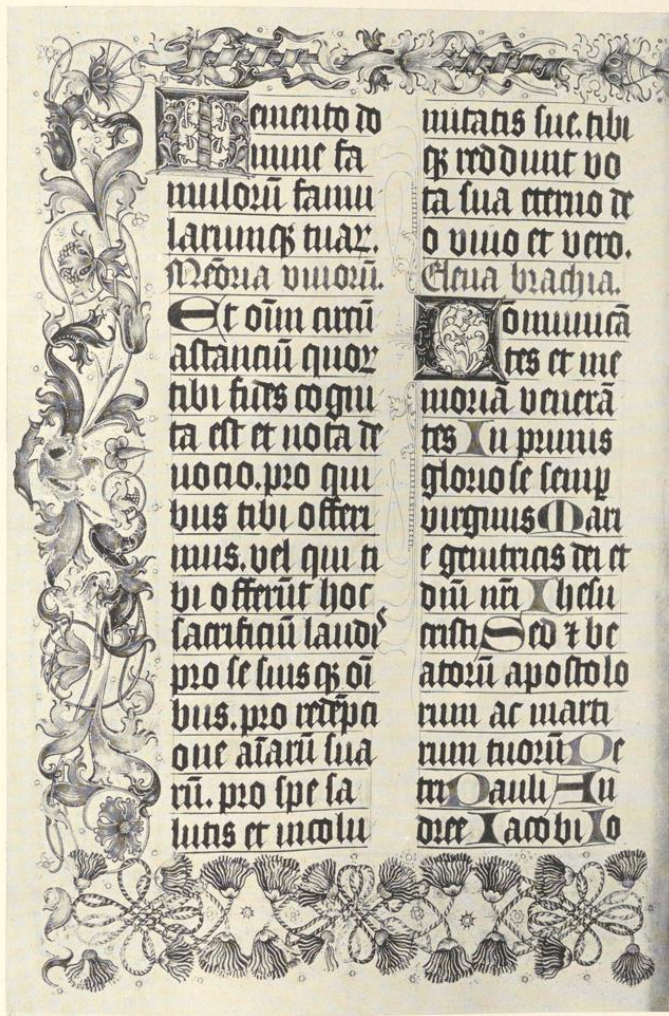 Memento do
mine fa
mulorū famu
larumqꝫ tuaꝝ.
Meōria viuorū.
Et oīm circū
astanciū quoꝝ
tibi fides cogni
ta est et nota de
uocio. pro qui
bus tibi offeri
mus. vel qui ti
bi offerūt hoc
sacrificiū laudis
pro se suisqꝫ oī
bus. pro redēpci
one aīarū sua
rū. pro spe sa
lutis et incolu
mitatis sue. tibi
qꝫ reddunt vo
ta sua eterno de
o viuo et vero.
Eleua brachia.
Comunicā
tes et me
moriā venerā
tes In primis
gloriose semꝑ
virginis Mari
e genitricis dei et
dīū nr̄i Ihesu
cristi Sed ⁊ be
atorū apostolo
rum ac marti
rum tuorū Pe
tri Pauli An
dree Iacobi Io